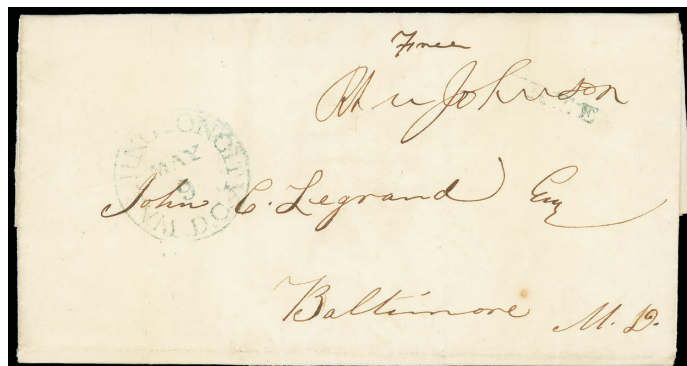 Free
Rh M Johnson
FREE
WASHINGTON CITY D.C.
MAY
9
John C. Legrand Esq
Baltimore M. D.